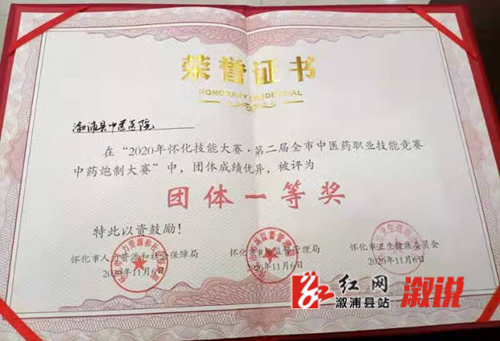 荣誉证书
HONORARY CREDENTIAL
溆浦县中医医院
在“2020年怀化技能大赛·第二届全市中医药职业技能竞赛
中药炮制大赛”中，团体成绩优异，被评为
团体一等奖
特此以资鼓励！
怀化市人力资源和社会保障局 怀化市市场监督管理局 怀化市卫生健康委员会
2020年11月6日 2020年11月6日 2020年11月6日
红网 溆说
溆浦县站